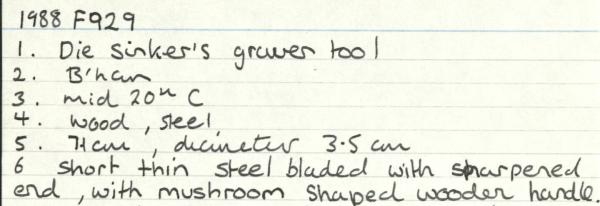 1988 F929
1. Die sinker's graver tool
2. B'ham
3. mid 20th C
4. wood, steel
5. 71cm, diameter 3.5 cm
6 short thin steel bladed with sharpened
end, with mushroom shaped wooden handle.